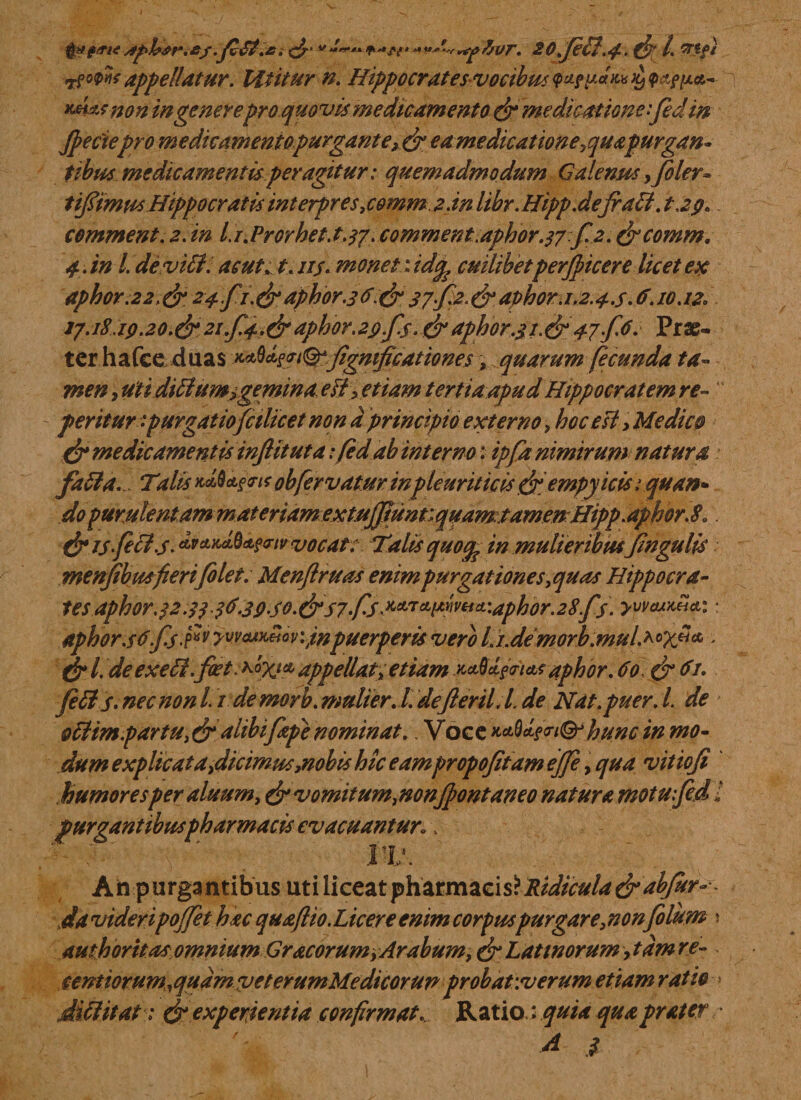 aphor. 20. sect. 4. & l. περὶ
τροφῆς appellatur. Utitur n. Hippocrates vocibus φαρμάκου & φαρμα-
κείας non in genere pro quovis medicamento & medicatione: sed in
specie pro medicamento purgante, & ea medicatione, quæ purgan-
tibus medicamentis peragitur: quemadmodum Galenus, soler-
tissimus Hippocratis interpres, comm. 2. in libr. Hipp. de fract. t. 29.
comment. 2. in l. 1. Prorhet. t. 37. comment. aphor. 37. s. 2. & comm.
4. in l. de vict. acut. t. 115. monet: idq; cuilibet perspicere licet ex
aphor. 22. & 24. s. 1. & aphor. 36. & 37. s. 2. & aphor. 1. 2. 4. 5. 6. 10. 12.
17. 18. 19. 20. & 21. s. 4. & aphor. 29. s. 5. & aphor. 31. & 47. s. 6. Præ-
ter hasce duas καθάρσι⊕ significationes, quarum secunda ta-
men, uti dictum, gemina est, etiam tertia apud Hippocratem re-
peritur: purgatio scilicet non à principio externo, hoc est, Medico
& medicamentis instituta: sed ab interno: ipsa nimirum natura
facta. Talis κάθαρσις observatur in pleuriticis & empyicis: quan-
do purulentam materiam extussiunt: quam tamen Hipp. aphor. 8.
& 15. sect. 5. ἀνακάθαρσιν vocat. Talis quoq; in mulieribus singulis
mensibus fieri solet. Menstruas enim purgationes, quas Hippocra-
tes aphor. 32. 33. 36. 39. 50. & 57. s. 5. καταμήνεια: aphor. 28. s. 5. γυναικεῖα:
aphor. 56. s. 5. ρὲν γυναικεῖον: in puerperis verò l. 1. de morb. mul. λοχεῖα
& l. de exect. fœt. λόχια appellat, etiam καθάρσιας aphor. 60. & 61.
sect. 5. nec non l. 1 de morb. mulier. l. de steril. l. de Nat. puer. l. de
octim. partu, & alibi sæpe nominat. Voce καθάρσι⊕ hunc in mo-
dum explicata, dicimus, nobis hîc eam propositam esse, qua vitiosi
humores per aluum, & vomitum, non spontaneo naturæ motu: sed
purgantibus pharmacis evacuantur.
II.
An purgantibus uti liceat pharmacis? Ridicula & absur-
da videri posset hæc quæstio. Licere enim corpus purgare, non solùm
authoritas omnium Græcorum, Arabum, & Latinorum, tàm re-
centiorum, quàm veterum Medicorum probat: verum etiam ratio
dictitat: & experientia confirmat. Ratio: quia quæ præter
A 3